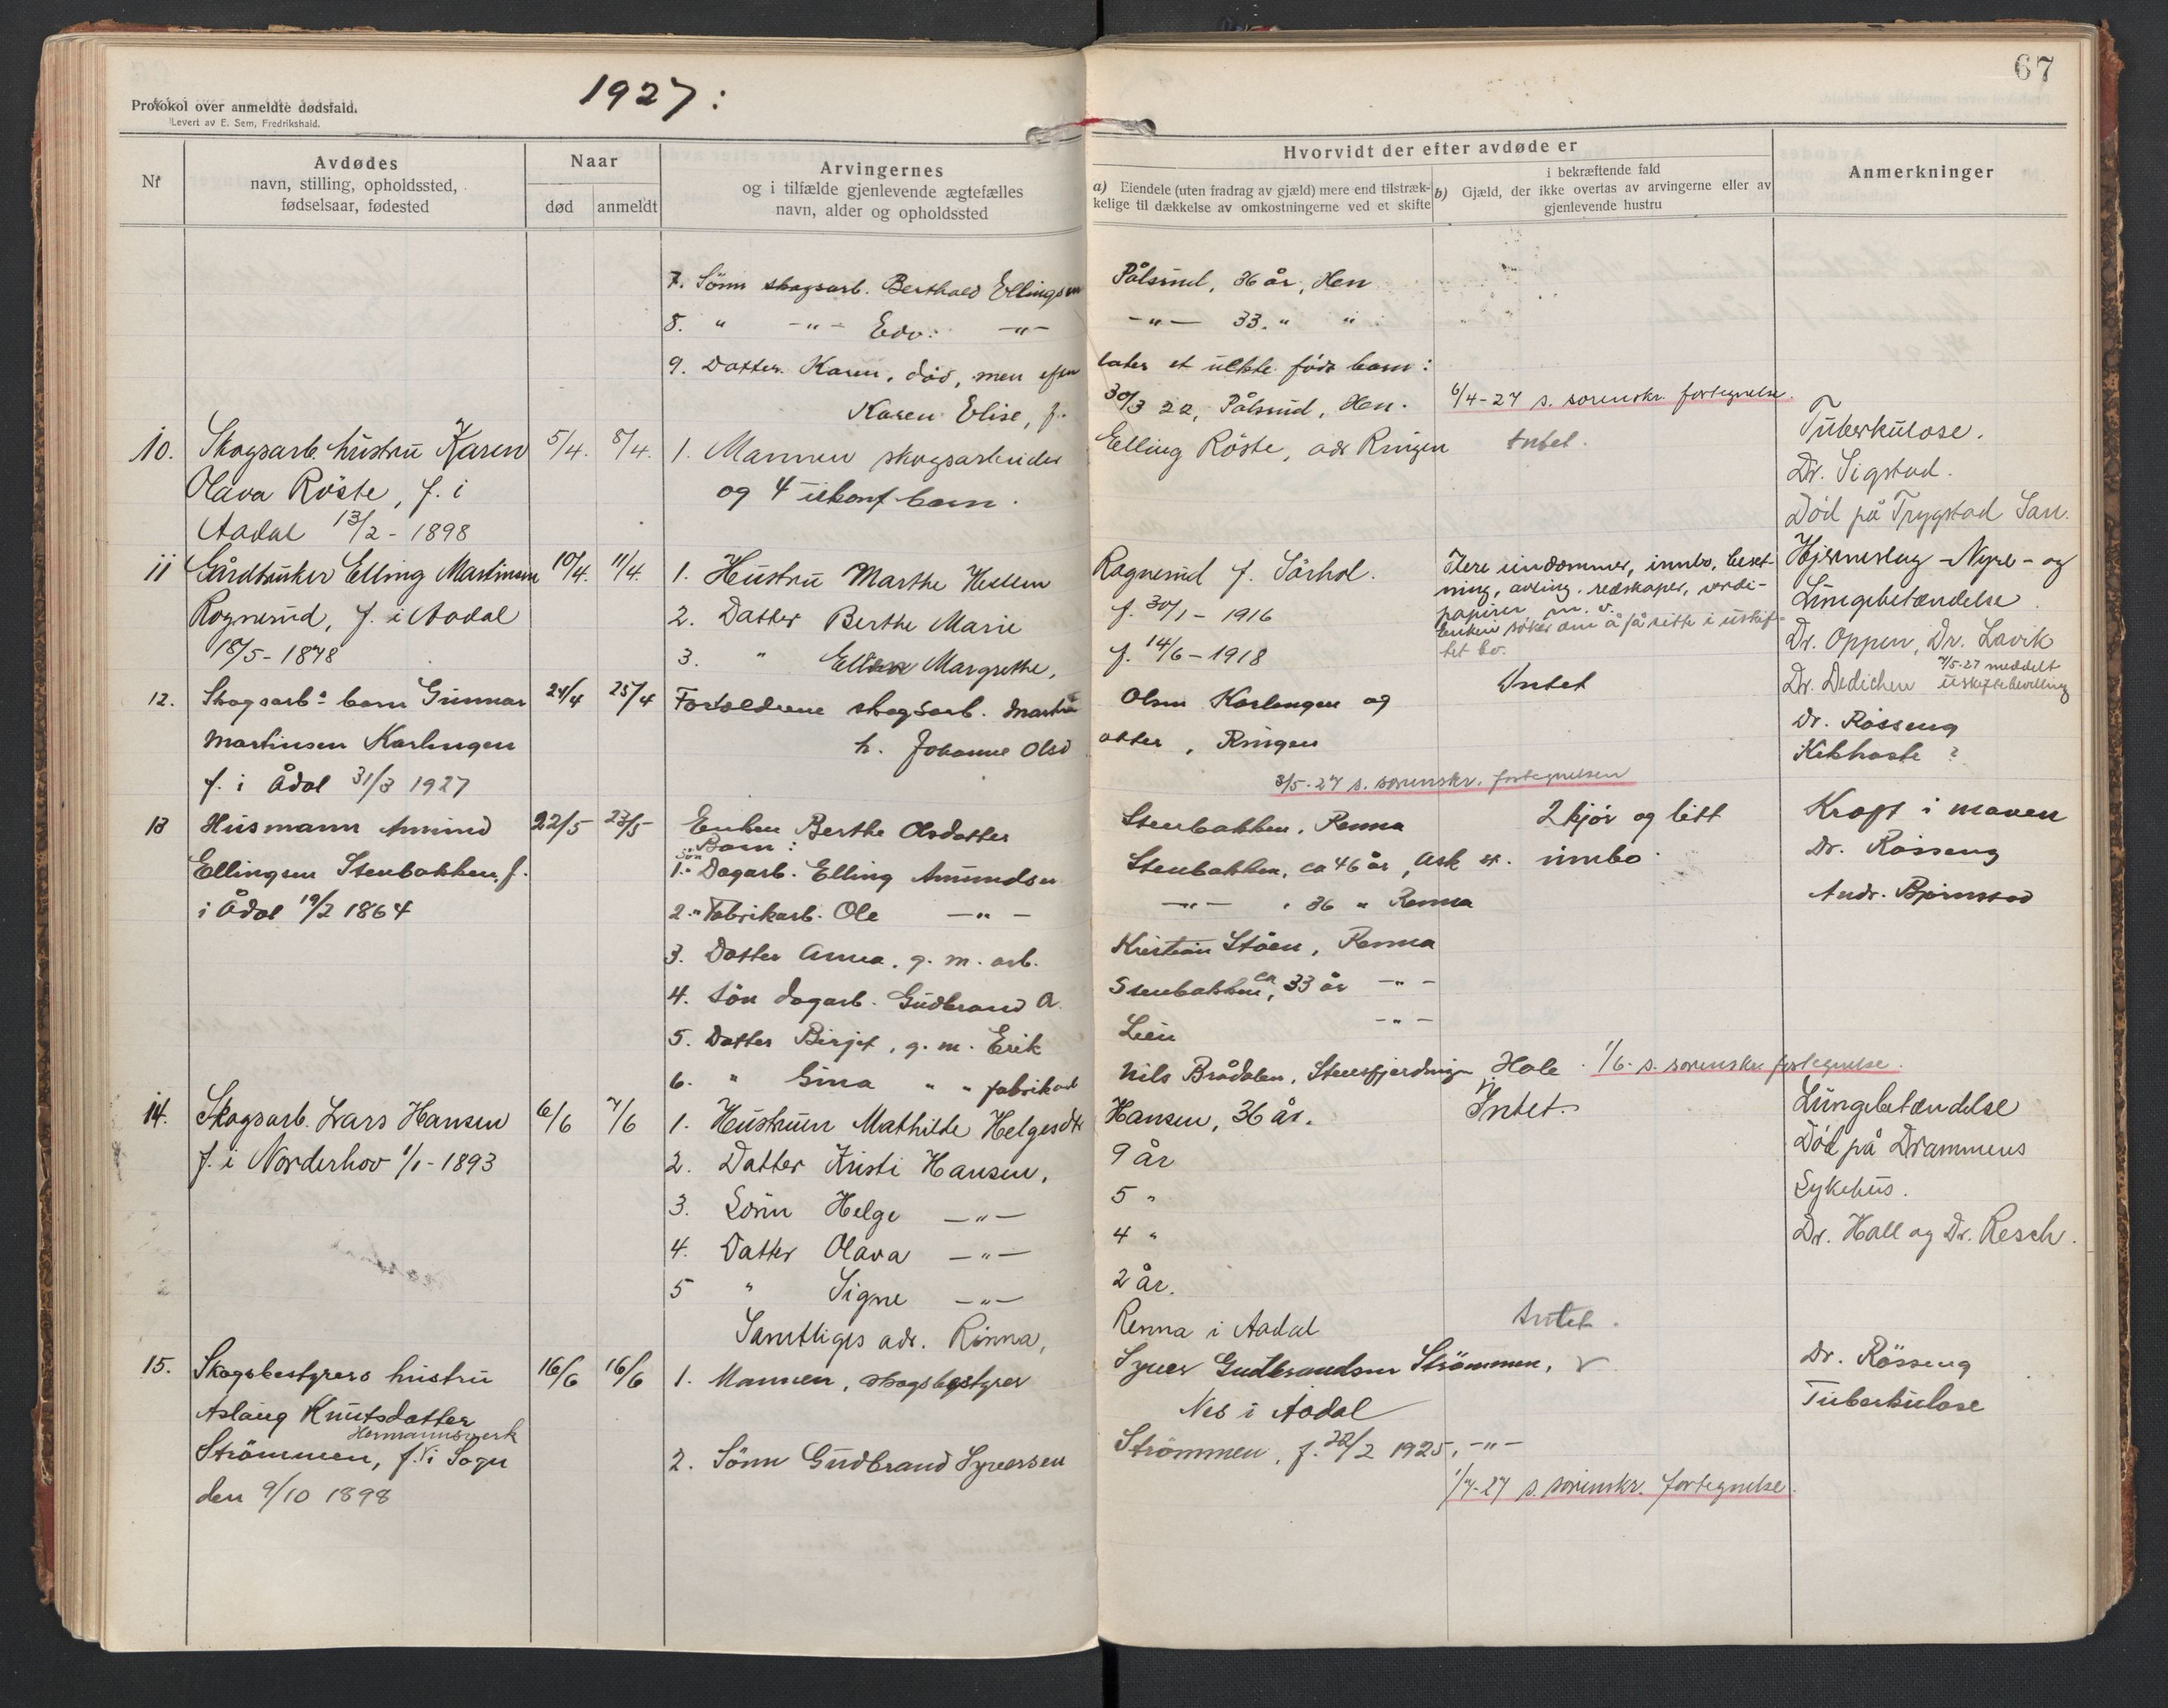 67
1927:
Protokol over anmeldte dødsfald.
Levert av E. Sem, Fredrikshald.
Nr
Avdødes
navn, stilling, opholdssted,
fødselsaar, fødested
Naar
død
anmeldt
Arvingernes
og i tilfælde gjenlevende ægtefælles
navn, alder og opholdssted
Hvorvidt der efter avdøde er
a) Eiendele (uten fradrag av gjæld) mere end tilstræk-
kelige til dækkelse av omkostningerne ved et skifte
i bekræftende fald
b) Gjæld, der ikke overtas av arvingerne eller av
gjenlevende hustru
Anmerkninger
7. Sönn skogsarb. Berthold Ellingsen Pålsrud, 36 år, Hen
8. " -"- Edv: -"- -"- 33 " "
9. Datter Karen, död, men efterlater et uekte född barn:
Karen Elise, f. 30/3 22, Pålsrud, Hen. 6/4-27 s. sorenskr. fortegnelse.
10. Skogsarb. hustru Karen 5/4. 8/4. 1. Mannen skogsarbeider Elling Röste, adr Ringen Intet. Tuberkulose.
Olava Röste, f. i og 4 ukonf. barn. Dr. Sigstad.
Aadal 13/2 - 1898 Död på Trygstad San.
11 Gårdbruker Elling Martinsen 10/4. 11/4. 1. Hustru Marthe Hellen Ragnerud f. Sörhol. Flere eiendommer, innbo, beset- Hjerneslag - Nyre- og
ning, avling, redskaper, verdi-
Rognerud, f. i Aadal 2. Datter Berthe Marie f. 30/1 - 1916 papirer m. v. Lungebetændelse
Enken söker om å få sitte i uskif-
18/5 - 1878 3. " Ellen Margrethe, f. 14/6 - 1918 tet bo. Dr. Oppen, Dr. Lavik
7/5-27 meddelt
Dr. Dedichen uskiftebevilling
12. Skogsarb.s barn Gunnar 24/4 25/4 Foreldrene skogsarb. Martin Olsen Karlsngen og Intet
Martinsen Karlsngen h. Johanne Olsdatter, Ringen Dr. Rösseng
f. i Ådal 31/3 1927 Kikhoste ?
3/5-27 s. sorenskr. fortegnelsen
13 Husmann Amund 22/5 23/5 Enken Berthe Olsdatter Stenbakken, Renna 2 kjör og litt Kræft i maven
Barn:
Ellingsen Stenbakken, f. 1. Sön Dagarb. Elling Amundsen Stenbakken, ca 46 år, Ask st. innbo. Dr. Rösseng
i Ådal 19/2 1864 2. " Fabrikarb. Ole -"- -"- " 36 " Renna Andr. Björnstad
3. Datter Anna, g. m. arb. Kristian Stöen, Renna
4. Sön dagarb. Gudbrand A. Stenbakken, ca 33 år -"-
5. Datter Birgit, g. m. Erik Lien -"-
6. " Gina " " fabrikarb Nils Brådalen, Steinsfjerdingen Hole. 1/6. s. sorenskr. fortegnelse.
14. Skogsarb. Lars Hansen 6/6 7/6 1. Hustruen Mathilde Helgesdtr Hansen, 36 år. Intet. Lungebetændelse
f. i Norderhov 1/1 - 1893 2. Datter Kristi Hansen, 9 år Död på Drammens
3. Sönn Helge -"- 5 " Sykehus.
4. Datter Olava -"- 4 " Dr. Hall og Dr. Resch.
5 " Signe -"- 2 år.
Samtliges adr. Rinna, Renna i Aadal Intet.
15. Skogsbestyrers hustru 16/6 16/6 1. Mannen, skogsbestyrer Syver Gudbrandsen Strömmen, v Dr. Rösseng
Aslaug Knutsdatter Nes i Aadal Tuberkulose
Hermannsverk
Strömmen, f. i Sogn 2. Sönn Gudbrand Syversen Strömmen, f. 22/2 1925, -"-
den 9/10 1898 1/7-27 s. sorenskr. fortegnelse.